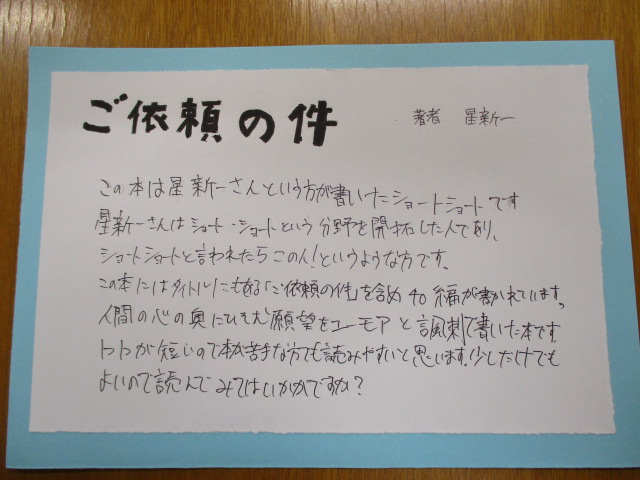 ご依頼の件
著者 星新一
この本は星新一さんという方が書いたショートショートです
星新一さんはショート・ショートという分野を開拓した人であり、
ショートショートと言われたらこの人!というような方です。
この本にはタイトルにもある「ご依頼の件」を含め40編が書かれています。
人間の心の奥にひそむ願望をユーモアと諷刺で書いた本です。
が短いので本が苦手な方でも読みやすいと思います。少しだけでも
よいので読んでみてはいかがですか?